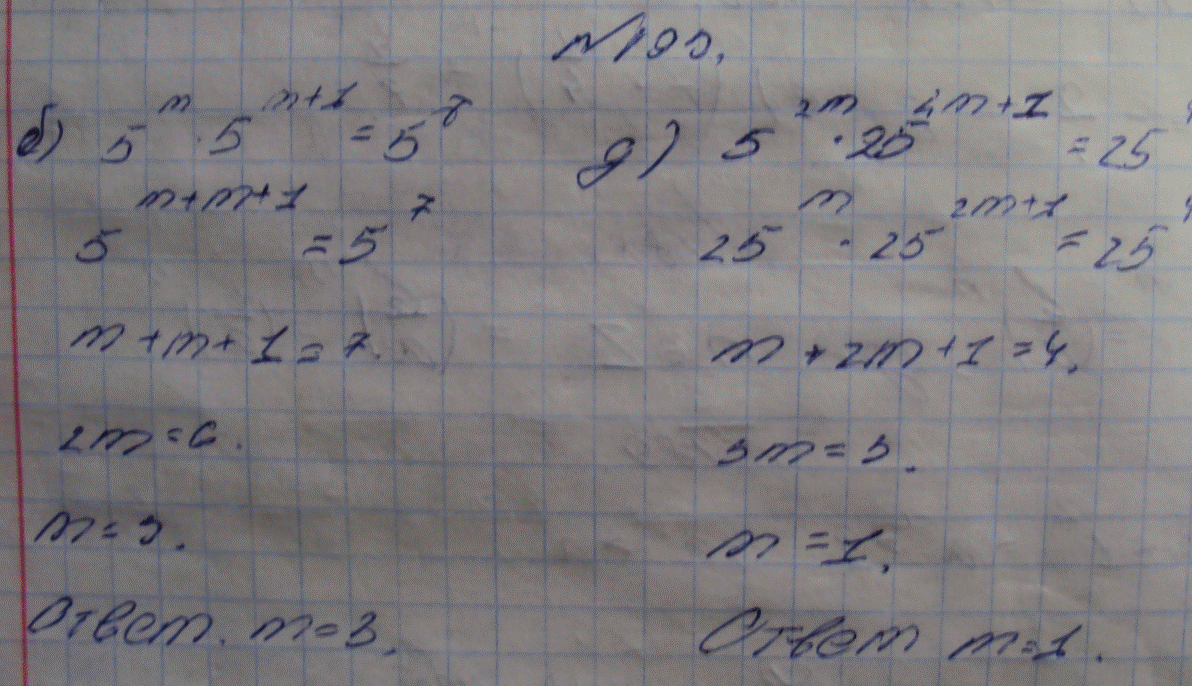 №193.
б) 5^m · 5^{m+1} = 5^7
5^{m+m+1} = 5^7
m + m + 1 = 7.
2m = 6.
m = 3.
Ответ. m = 3.
д) 5^{2m} · 25^{2m+1} = 25^4
25^m · 25^{2m+1} = 25^4
m + 2m + 1 = 4.
3m = 3.
m = 1.
Ответ m = 1.